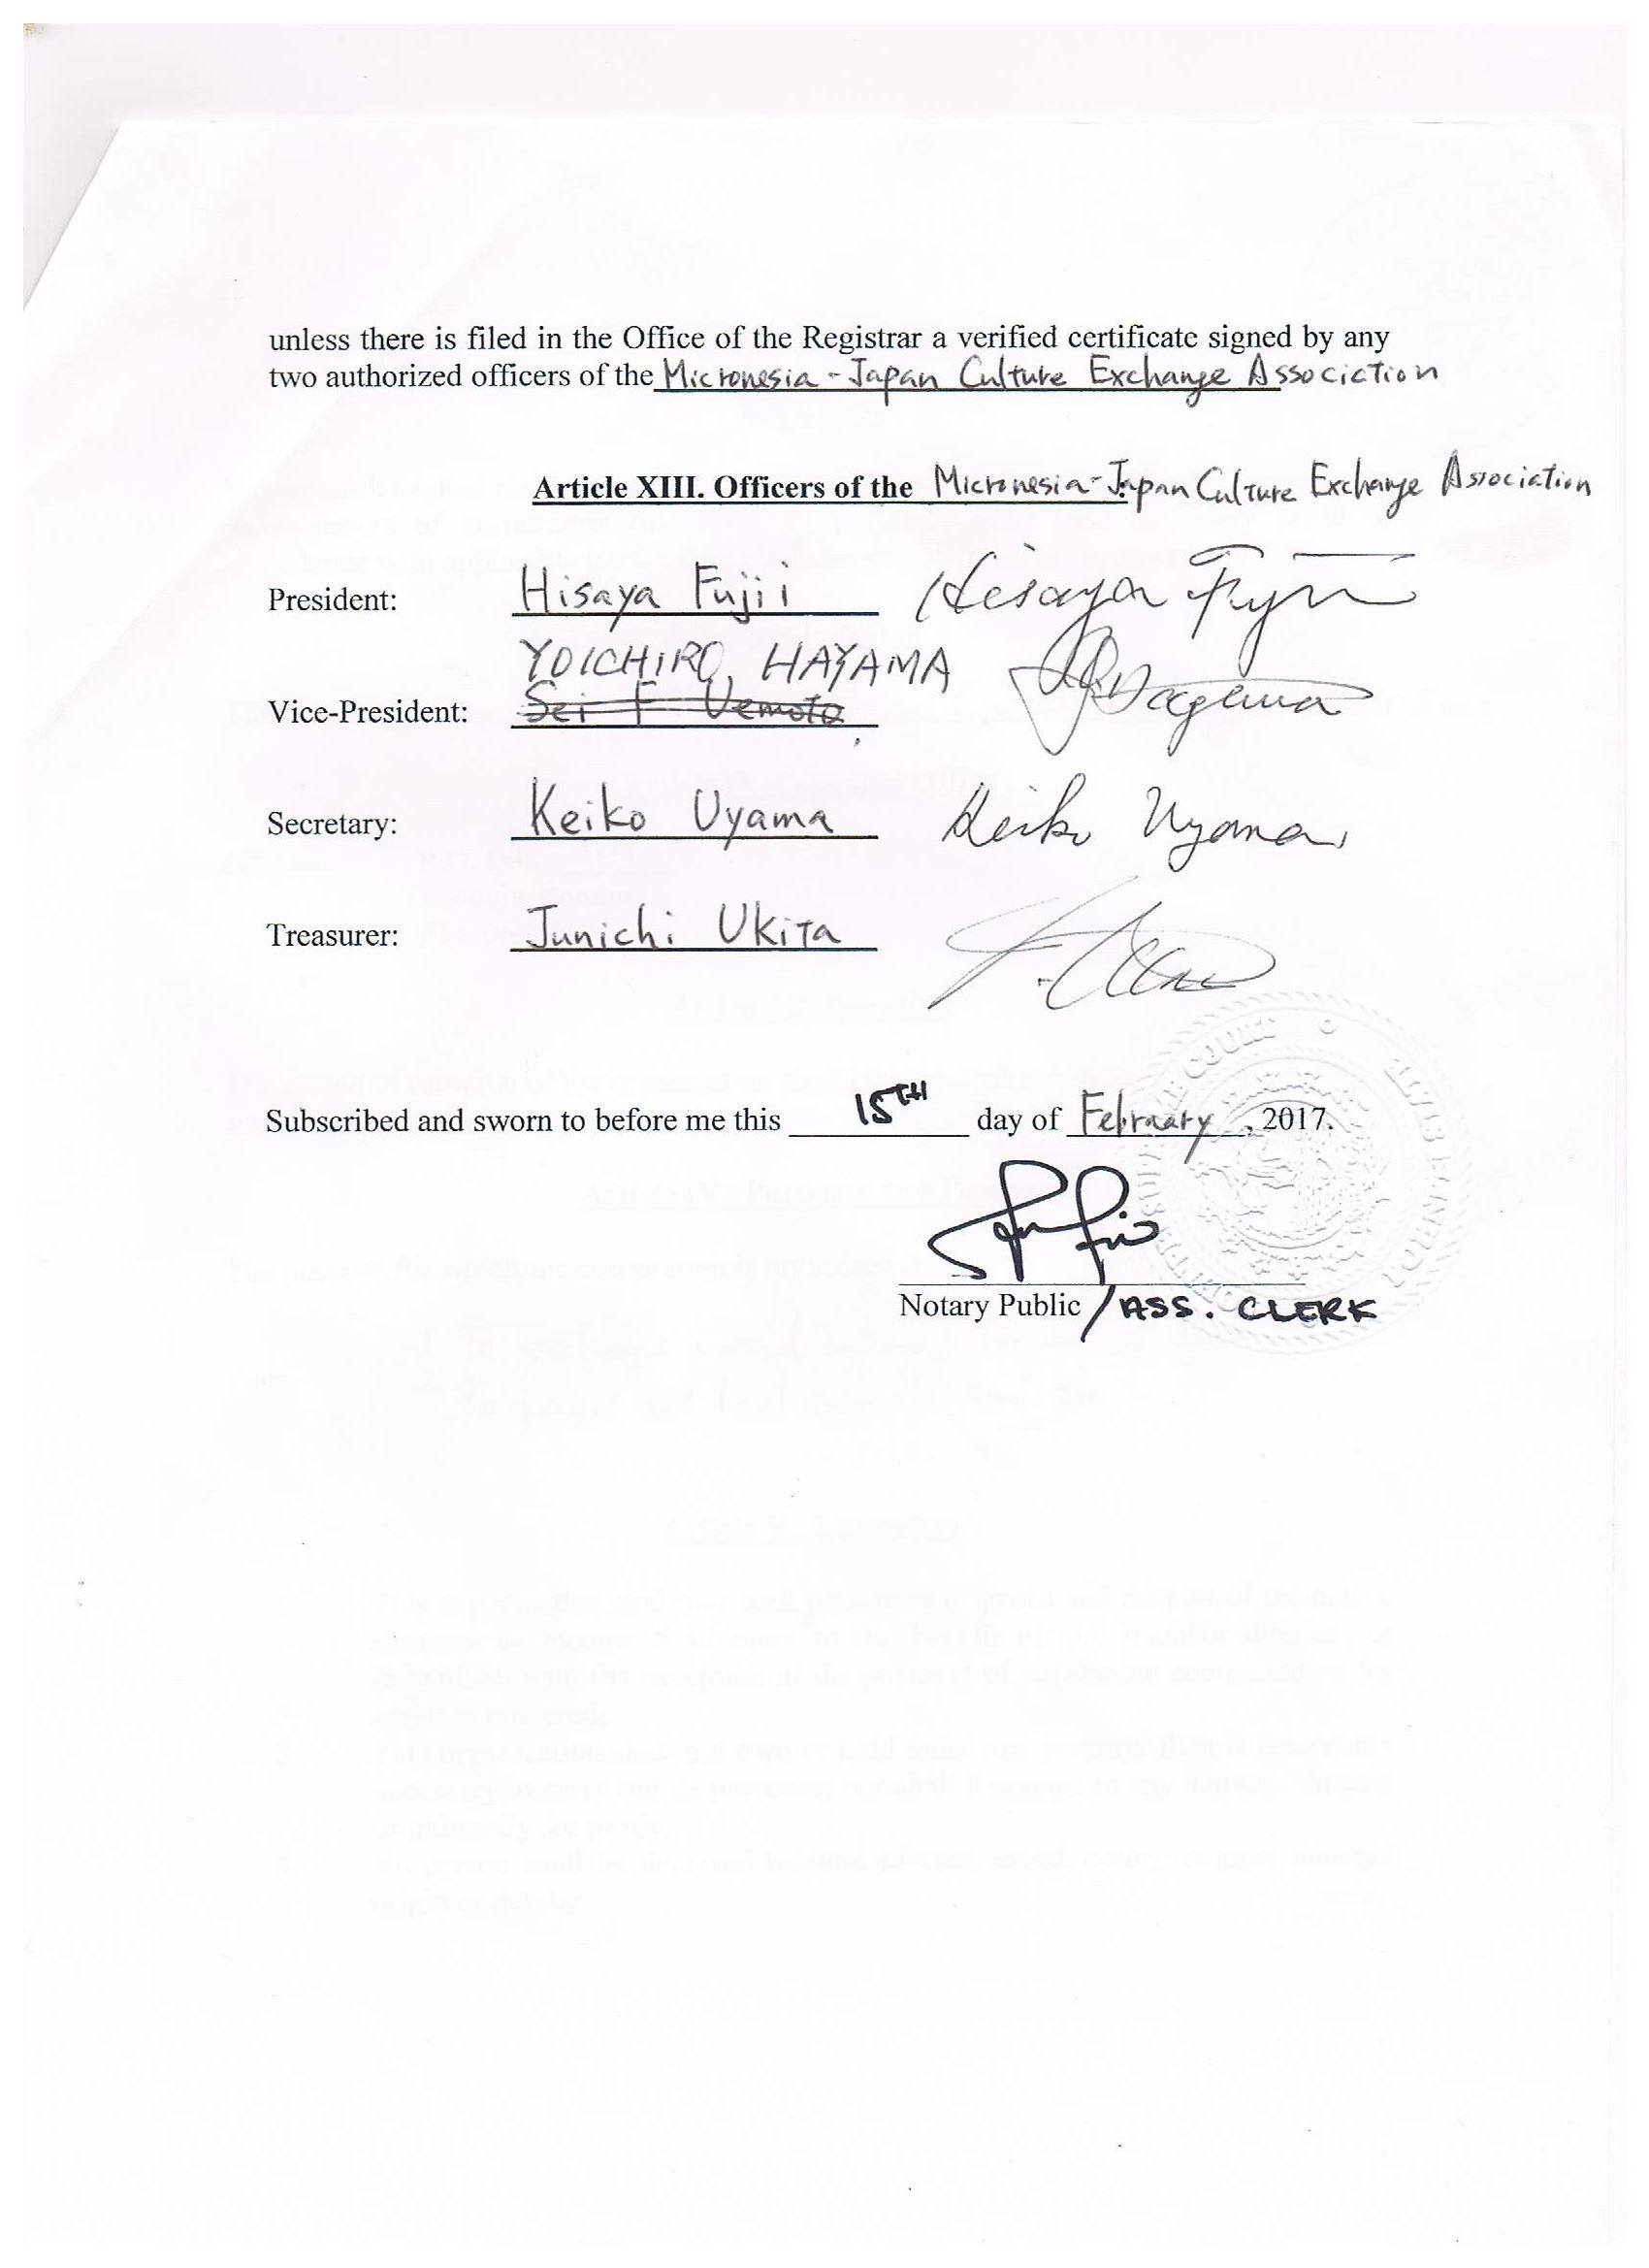 unless there is filed in the Office of the Registrar a verified certificate signed by any
two authorized officers of the Micronesia-Japan Culture Exchange Associction
Article XIII. Officers of the Micronesia-Japan Culture Exchange Association
President: Hisaya Fujii Hisaya Fujii
YOICHIRO HAYAMA
Vice-President: Sei F Uemoto
Secretary: Keiko Uyama Keiko Uyama
Treasurer: Junichi Ukita
Subscribed and sworn to before me this 15TH day of February, 2017.
Notary Public / ASS. CLERK